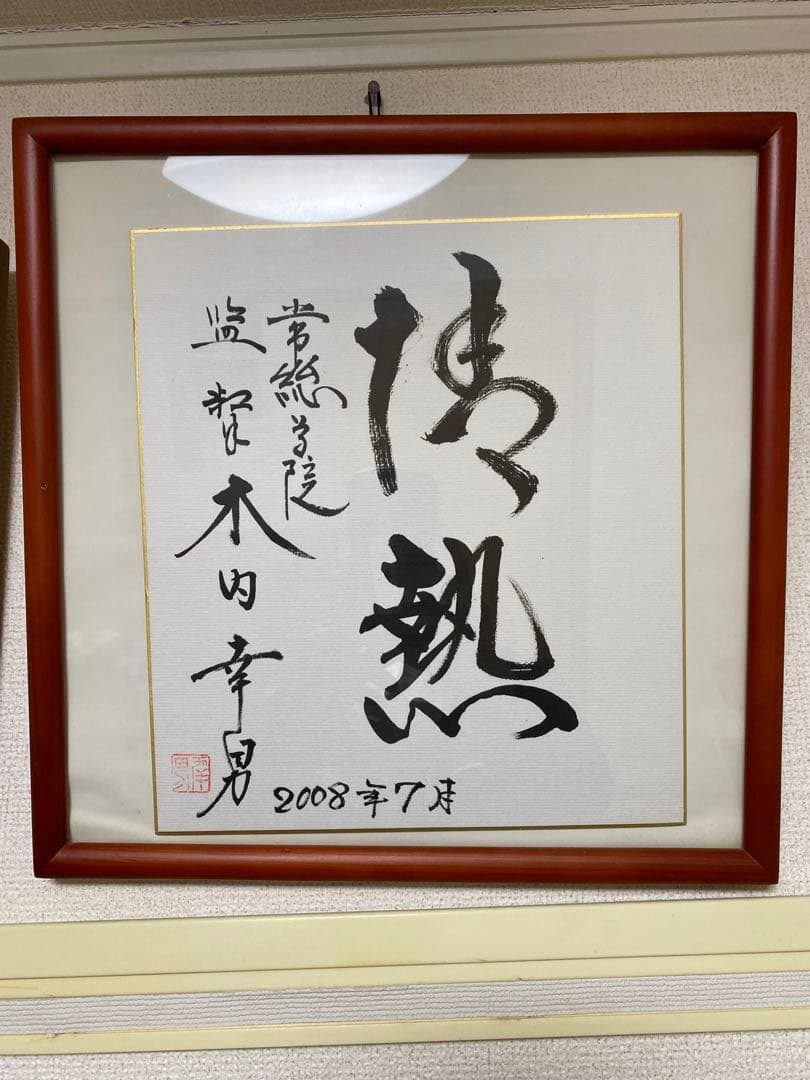 情熱
常総学院
監督 木内幸男
2008年7月